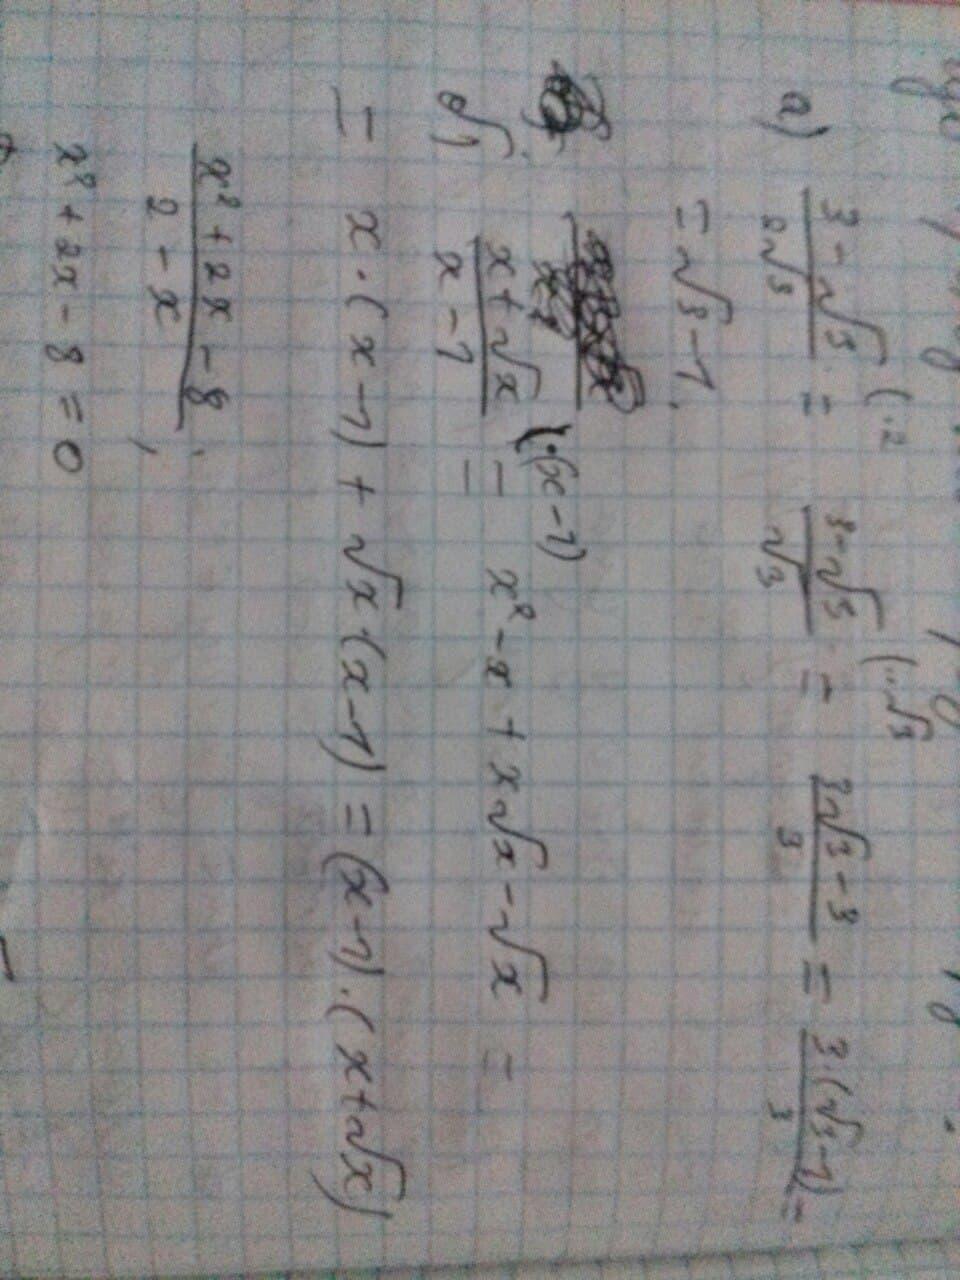 а) (3 - √3)/(2√3) (·2 = (3 - √3)/√3 (·√3 = (3√3 - 3)/3 = (3·(√3 - 1))/3 =
= √3 - 1.
б) (x + √x)/(x - 1) (·(x - 1) = x² - x + x√x - √x =
= x·(x - 1) + √x (x - 1) = (x - 1)·(x + √x)
(x² + 2x - 8)/(2 - x) ,
x² + 2x - 8 = 0